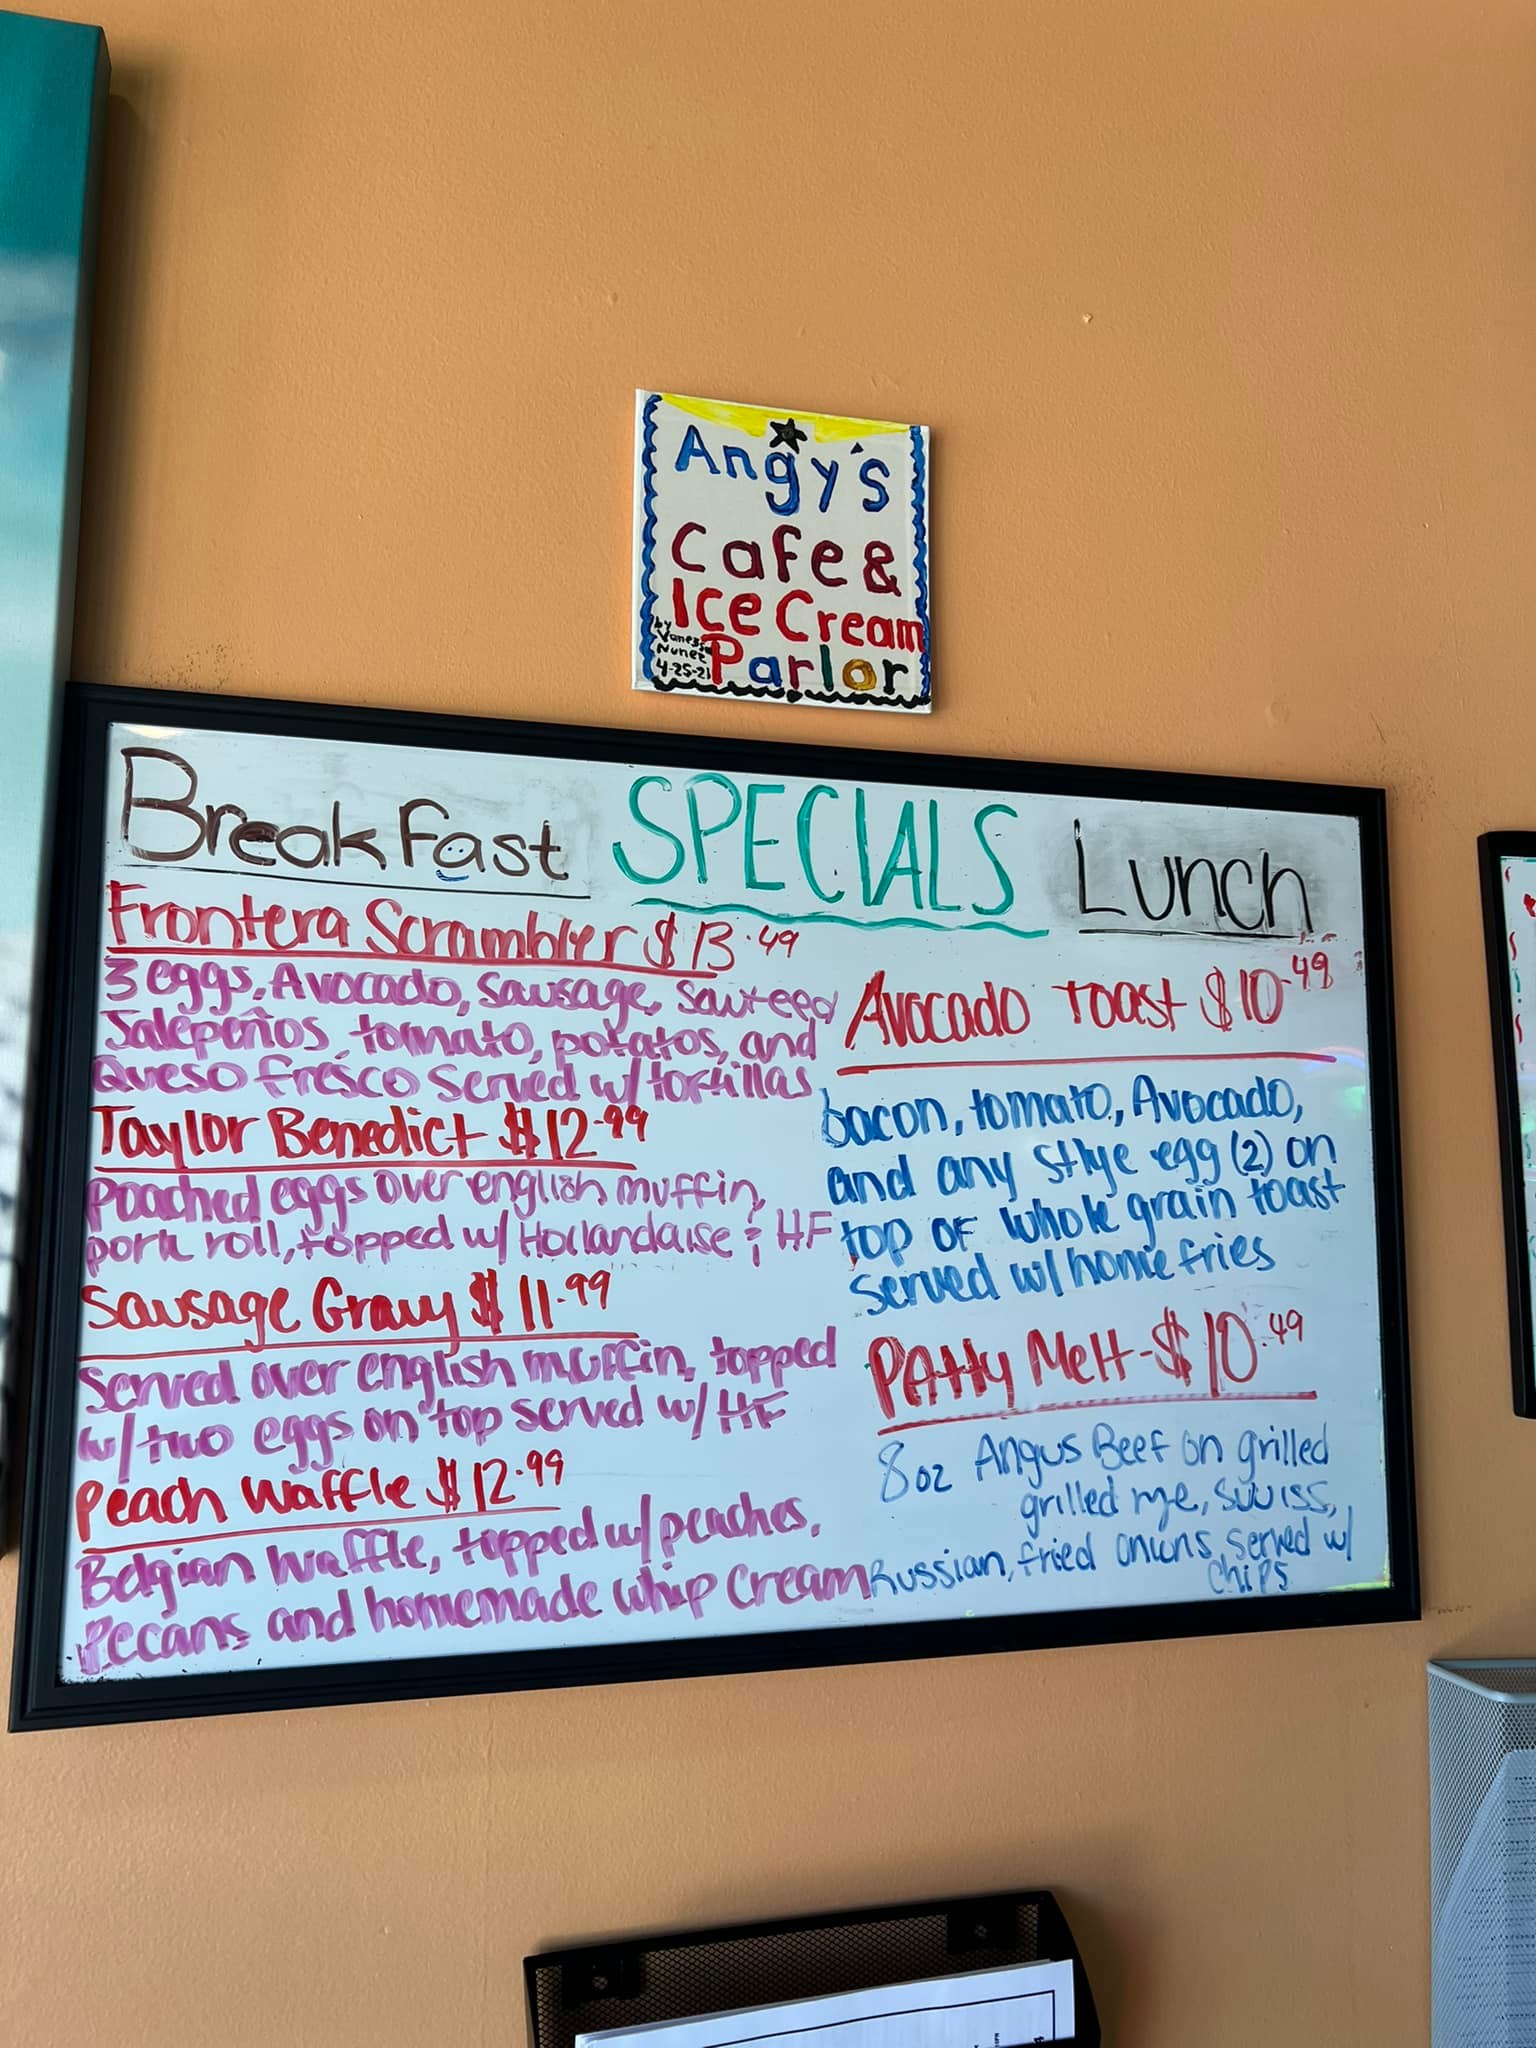 Angy's
Cafe &
Ice Cream
Parlor
by
Vanessa
Nunez
4-25-21
Breakfast
SPECIALS
Lunch
Frontera Scrambler $13.49
3 eggs, Avocado, Sausage, Sauteed
Jalepeños, tomato, potatos, and
Queso fresco served w/ tortillas
Taylor Benedict $12.99
Poached eggs over english muffin,
pork roll, topped w/ Hollandaise & HF
Sausage Gravy $11.99
Served over english muffin, topped
w/ two eggs on top served w/ HF
Peach Waffle $12.99
Belgian Waffle, topped w/ peaches,
Pecans and homemade whip cream
Avocado Toast $10.49
bacon, tomato, Avocado,
and any stlye egg (2) on
top of whole grain toast
served w/ home fries
Patty Melt - $10.49
8oz Angus Beef on grilled
grilled rye, swiss,
Russian, fried onions served w/
chips